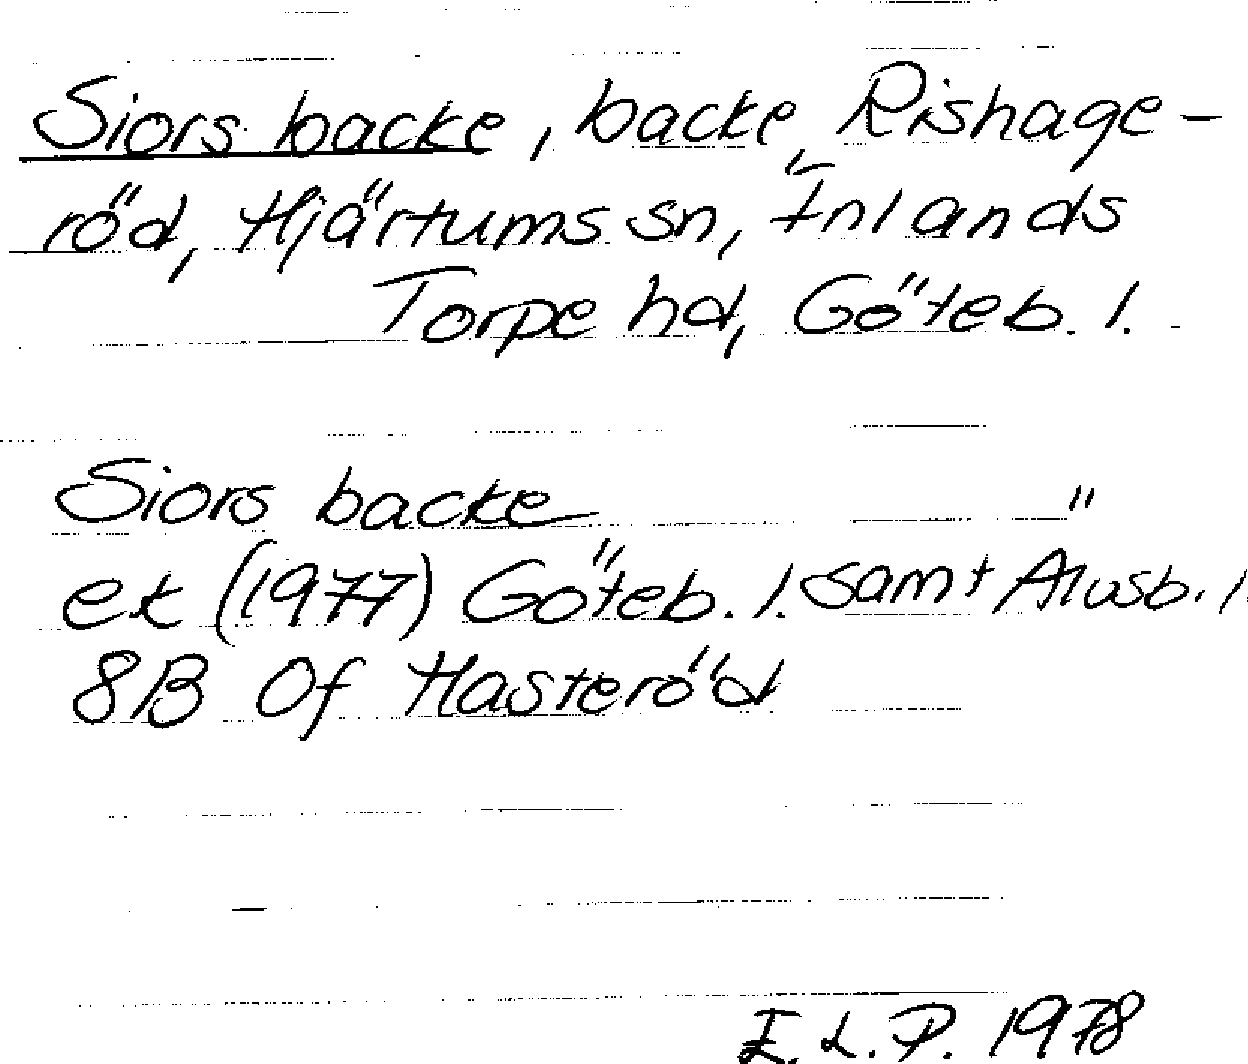 Siors backe, backe, Rishage-
röd, Hjärtums sn, Inlands
Torpe hd, Göteb. l.
Siors backe "
ek (1977) Göteb. l. samt Älvsb. l.
8B 0f Hasteröd
E.L.P. 1978